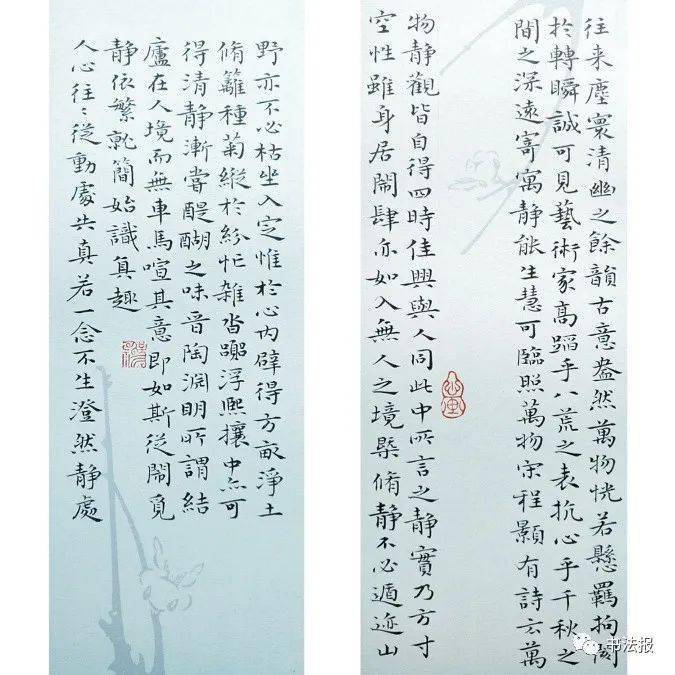 往来塵寰清幽之餘韻古意盎然萬物恍若懸羈拘
於轉瞬誠可見藝術家高蹈乎八荒之表抗心乎千秋之
間之深遠寄寓静能生慧可臨照萬物宋程顥有詩云萬
物静觀皆自得四時佳興與人同此中所言之静實乃方寸
空性雖身居鬧肆亦如入無人之境槩脩静不必遁迹山
野亦不必枯坐入定惟於心内辟得方畝淨土
脩籬種菊縱於紛忙雜沓躁浮熙攘中亦可
得清静漸嘗醍醐之味晋陶淵明所謂結
廬在人境而無車馬喧其意即如斯從鬧覓
静依繁就簡始識真趣
人心往〻從動處失真若一念不生澄然静處
书法报